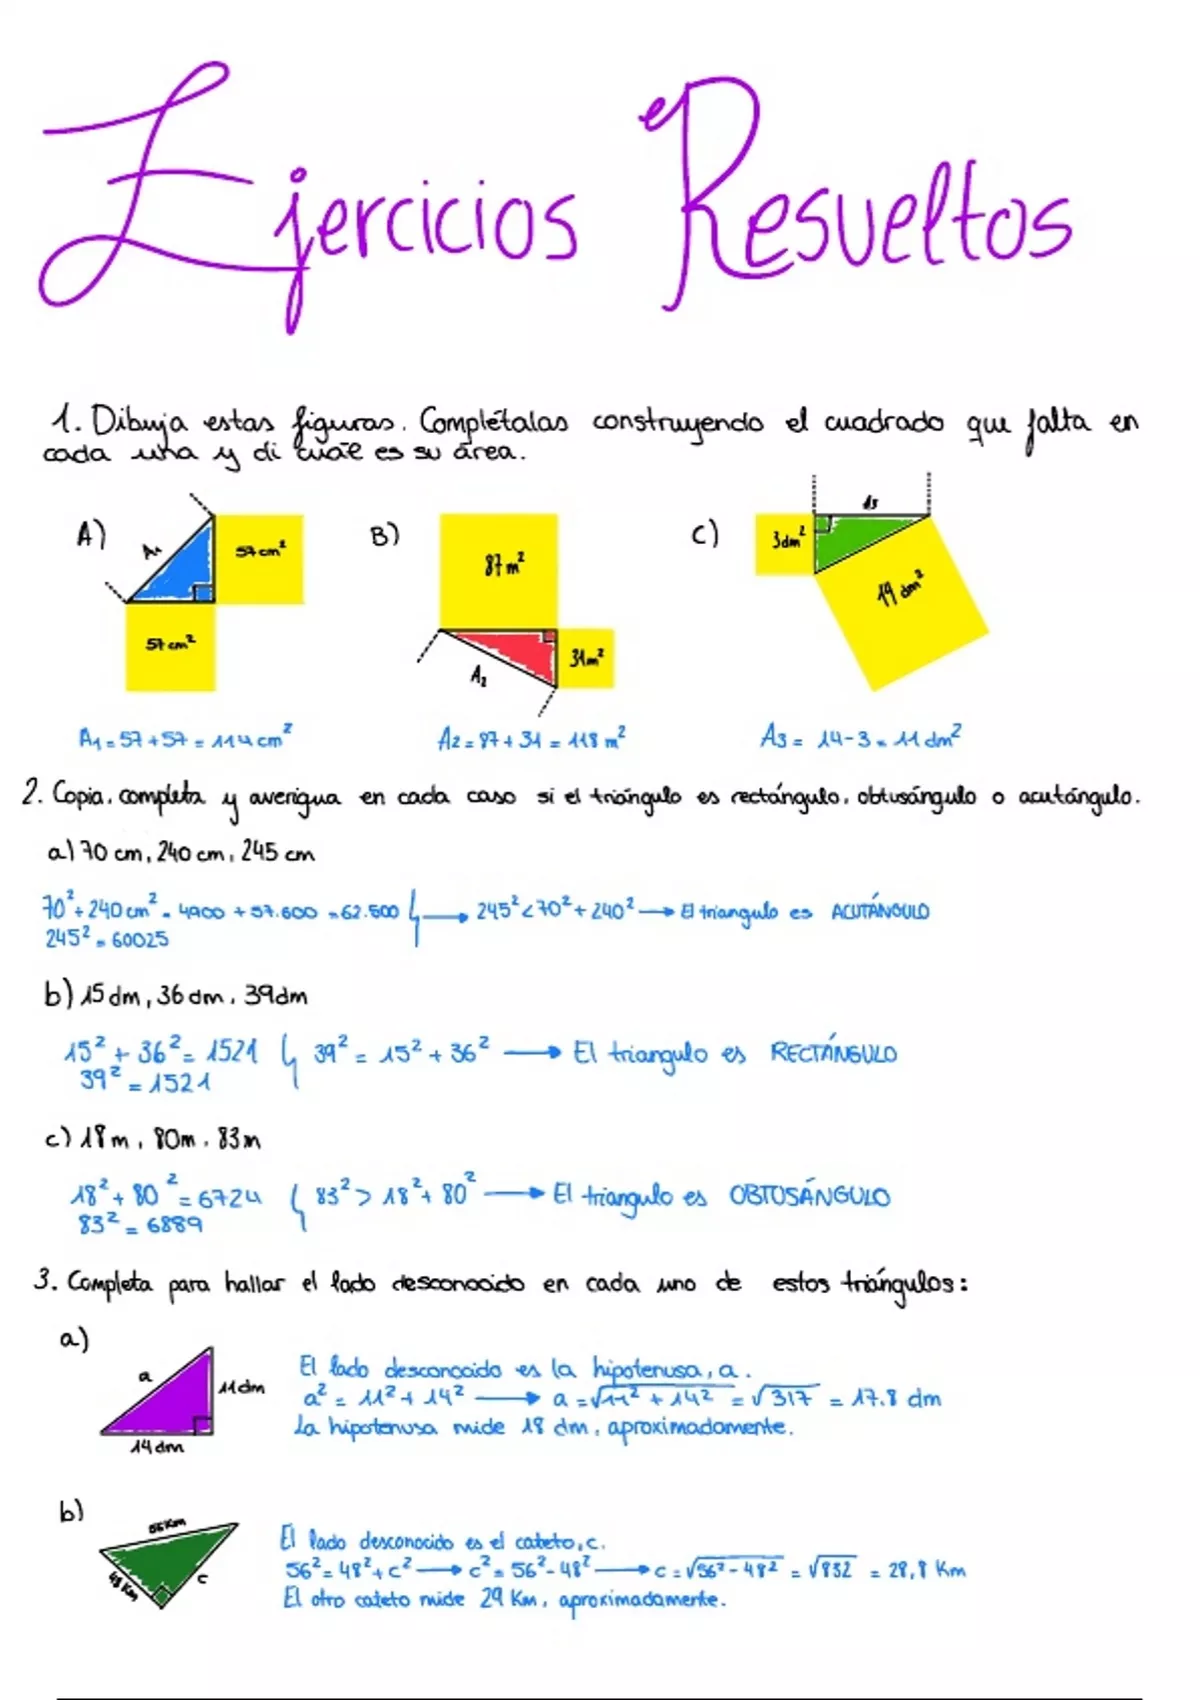 Ejercicios Resueltos
1. Dibuja estas figuras. Complétalas construyendo el cuadrado que falta en
cada una y di cuál es su área.
A) A₁ 57 cm² 57 cm²
B) 87 m² 31 m² A₂
C) 3 dm² A3 14 dm²
A₁ = 57 + 57 = 114 cm²
A₂ = 87 + 31 = 118 m²
A₃ = 14 - 3 = 11 dm²
2. Copia, completa y averigua en cada caso si el triángulo es rectángulo, obtusángulo o acutángulo.
a) 70 cm, 240 cm, 245 cm
70² + 240 cm² = 4900 + 57.600 = 62.500 → 245² < 70² + 240² → El triangulo es ACUTÁNGULO
245² = 60025
b) 15 dm, 36 dm, 39 dm
15² + 36² = 1521 39² = 15² + 36² → El triangulo es RECTÁNGULO
39² = 1521
c) 18 m, 80 m, 83 m
18² + 80² = 6724 83² > 18² + 80² → El triangulo es OBTUSÁNGULO
83² = 6889
3. Completa para hallar el lado desconocido en cada uno de estos triángulos:
a)
a 11 dm
14 dm
El lado desconocido es la hipotenusa, a.
a² = 11² + 14² → a = √11² + 14² = √317 = 17.8 dm
La hipotenusa mide 18 dm, aproximadamente.
b)
56 Km
48 Km c
El lado desconocido es el cateto, c.
56² = 48² + c² → c² = 56² - 48² → c = √56² - 48² = √832 = 28,8 Km
El otro cateto mide 29 Km, aproximadamente.